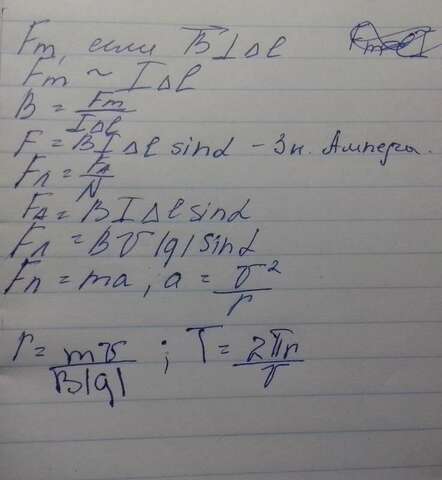 Fm, если B⃗ I Δl
Fm ~ I Δl
B = Fm / IΔl
F = BI Δl sinα – Зн. Ампера.
Fл = FA / N
FA = BIΔl sinα
Fл = Bv|q| sinα
Fл = ma, a = v² / r
r = mv / B|q| ; T = 2πr / v